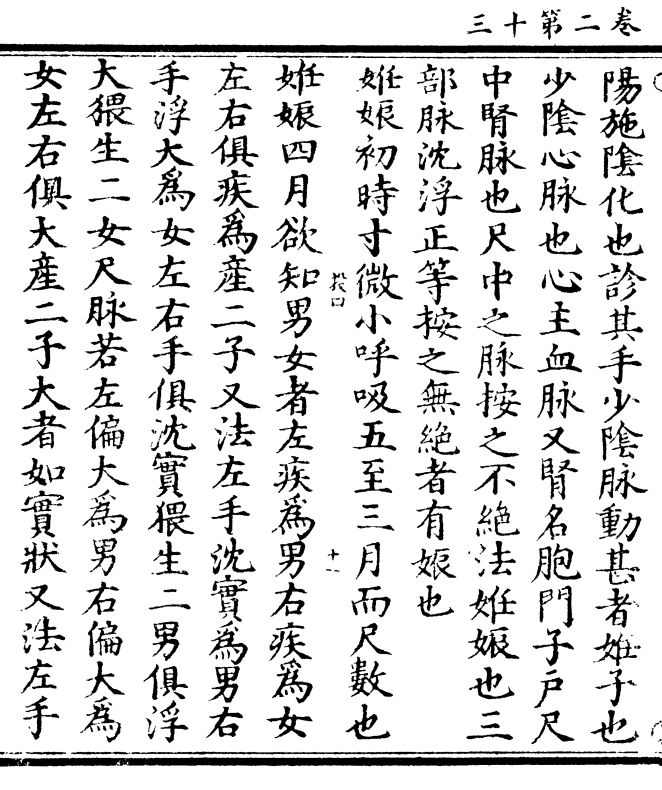 三十第二卷
陽施陰化也診其手少陰脉動甚者姙子也
少陰心脉也心主血脉又腎名胞門子戸尺
中腎脉也尺中之脉按之不絶法姙娠也三
部脉沈浮正等按之無絶者有娠也
姙娠初時寸微小呼吸五至三月而尺數也
姙娠四月欲知男女者左疾爲男右疾爲女
左右俱疾爲産二子又法左手沈實爲男右
手浮大爲女左右手俱沈實猥生二男俱浮
大猥生二女尺脉若左偏大爲男右偏大爲
女左右俱大産二子大者如實狀又法左手